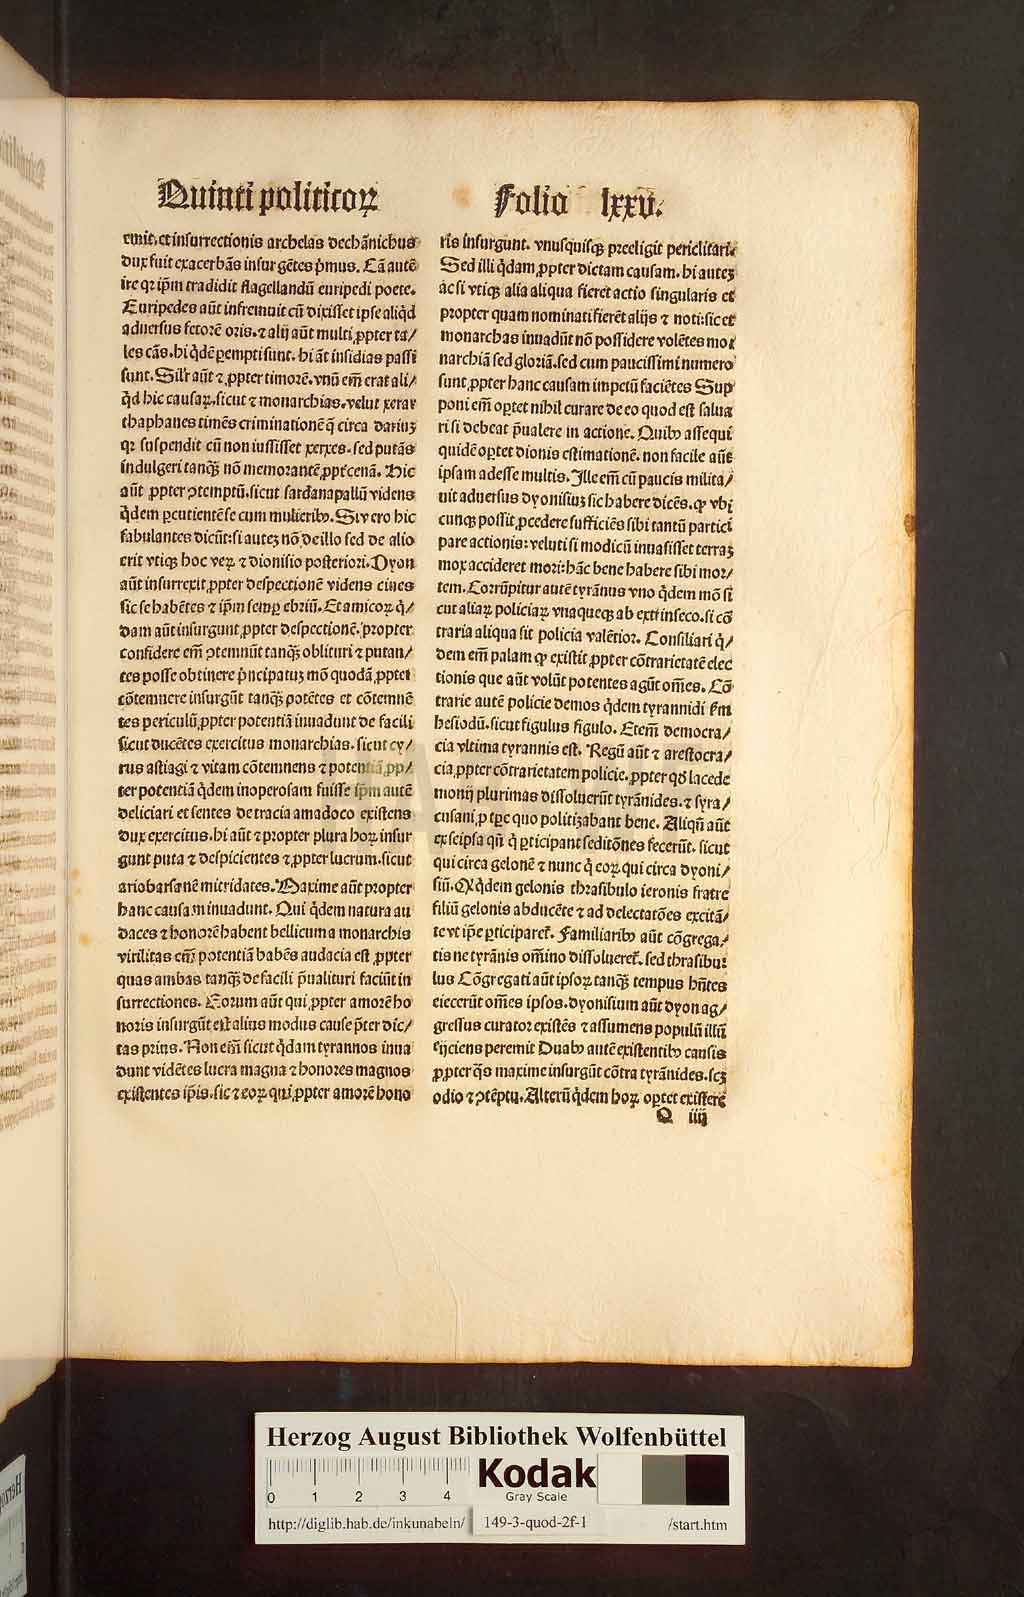 Quinti politicoꝝ
Folio lxxv.
emit. et insurrectionis archelas dechānichus
dux fuit exacerbās insurgētes p̄mus. Cā autē
ire qꝛ ip̄m tradidit flagellandū euripedi poete.
Euripedes aūt infremuit cū dixisset ipse aliqd̓
aduersus fetorē oris. ⁊ alij aūt multi ꝓpter ta/
les cās. hi qd̓ē ꝑempti sunt. hi āt insidias passi
sunt. Silr̄ aūt ⁊ ꝓpter timorē. vnū em̄ erat ali/
qd̓ hic causaꝝ. sicut ⁊ monarchias. velut xerar
thaphanes timēs criminationē q̄ circa dariuꝫ
qꝛ suspendit cū non iussisset xerxes. sed putās
indulgeri tanqꝫ nō memorantē ꝓpt̓ cenā. Hic
aūt ꝓpter ꝯtemptū. sicut sardanapallū videns
qd̓em ꝑcutientē se cum mulieribꝰ. Si vero hic
fabulantes dicūt: si auteꝫ nō de illo sed de alio
erit vtiqꝫ hoc veꝝ ⁊ dionisio posteriori. Dyon
aūt insurrexit ꝓpter despectionē videns ciues
sic se habētes ⁊ ip̄m semꝑ ebriū. Et amicoꝝ q̓/
dam aūt insurgunt ꝓpter despectionē. propter
confidere em̄ ꝯtemnūt tanqꝫ oblituri ⁊ putan/
tes posse obtinere p̄ncipatuꝫ mō quodā ꝓpter
cōtemnere insurgūt tanqꝫ potētes et cōtemnē
tes periculū ꝓpter potentiā inuadunt de facili
sicut ducētes exercitus monarchias. sicut cy/
rus astiagi ⁊ vitam cōtemnens ⁊ potentiā ꝓp/
ter potentiā qd̓em inoperosam fuisse ip̄m autē
deliciari et sentes de tracia amadoco existens
dux exercitus. hi aūt ⁊ propter plura hoꝝ insur
gunt puta ⁊ despicientes ⁊ ꝓpter lucrum. sicut
ariobarsanē mitridates. Maxime aūt propter
hanc causam inuadunt. Qui qd̓em natura au
daces ⁊ honorē habent bellicum a monarchis
virilitas em̄ potentiā habēs audacia est ꝓpter
quas ambas tanqꝫ de facili p̄ualituri faciūt in
surrectiones. Eorum aūt qui ꝓpter amorē ho
noris insurgūt est alius modus cause p̄ter dic/
tas prius. Non em̄ sicut qd̓am tyrannos inua
dunt vidētes lucra magna ⁊ honores magnos
existentes ip̄is. sic ⁊ eoꝝ qui ꝓpter amorē hono
ris insurgunt. vnusquisqꝫ preeligit periclitari.
Sed illi qd̓am ꝓpter dictam causam. hi auteꝫ
ac si vtiqꝫ alia aliqua fieret actio singularis et
propter quam nominati fierēt alijs ⁊ noti: sic et
monarchas inuadūt nō possidere volētes mo
narchiā sed gloriā. sed cum paucissimi numero
sunt ꝓpter hanc causam impetū faciētes Sup
poni em̄ oꝑtet nihil curare de eo quod est salua
ri si debeat p̄ualere in actione. Quibꝰ assequi
quidē oꝑtet dionis estimationē. non facile aūt
ipsam adesse multis. Ille em̄ cū paucis milita/
uit aduersus dyonisiuꝫ sic habere dicēs. ꝙ vbi
cunqꝫ possit ꝓcedere sufficiēs sibi tantū partici
pare actionis: veluti si modicū inuasisset terraꝫ
mox accideret mori: hāc bene habere sibi mor/
tem. Corrūpitur autē tyrānus vno qd̓em mō si
cut aliaꝝ policiaꝝ vnaqueqꝫ ab extrinseco. si cō
traria aliqua sit policia valētior. Consiliari q̓/
dem em̄ palam ꝙ existit ꝓpter cōtrarietatē elec
tionis que aūt volūt potentes agūt om̄es. Cō
trarie autē policie demos qd̓em tyrannidi ẜm
hesiodū. sicut figulus figulo. Etem̄ democra/
cia vltima tyrannis est. Regū aūt ⁊ arestocra/
cia ꝓpter cōtrarietatem policie. ꝓpter qd̓ lacede
monij plurimas dissoluerūt tyrānides. ⁊ syra/
cusani ꝑ tꝑe quo politizabant bene. Aliqn̄ aūt
ex seipsa qn̄ q̓ ꝑticipant seditōnes fecerūt. sicut
qui circa gelonē ⁊ nunc q̓ eoꝝ qui circa dyoni/
siū. Qd̓em gelonis thrasibulo ieronis fratre
filiū gelonis abducēte ⁊ ad delectatōes excitā/
te vt ip̄e ꝑticiparet. Familiaribꝰ aūt cōgrega/
tis ne tyrānis om̄ino dissolueret. sed thrasibu
lus Cōgregati aūt ipsoꝝ tanqꝫ tempus hn̄tes
eiecerūt om̄es ipsos. dyonisium aūt dyon ag/
gressus curator existēs ⁊ assumens populū illū
eijciens peremit Duabꝰ autē existentibꝰ causis
ꝓpter qs̄ maxime insurgūt cōtra tyrānides. scꝫ
odio ⁊ ꝯtēptu. Alterū qd̓em hoꝝ oꝑtet existere
Q iiij
Herzog August Bibliothek Wolfenbüttel
0 1 2 3 4
Kodak
Gray Scale
http://diglib.hab.de/inkunabeln/ 149-3-quod-2f-1 /start.htm